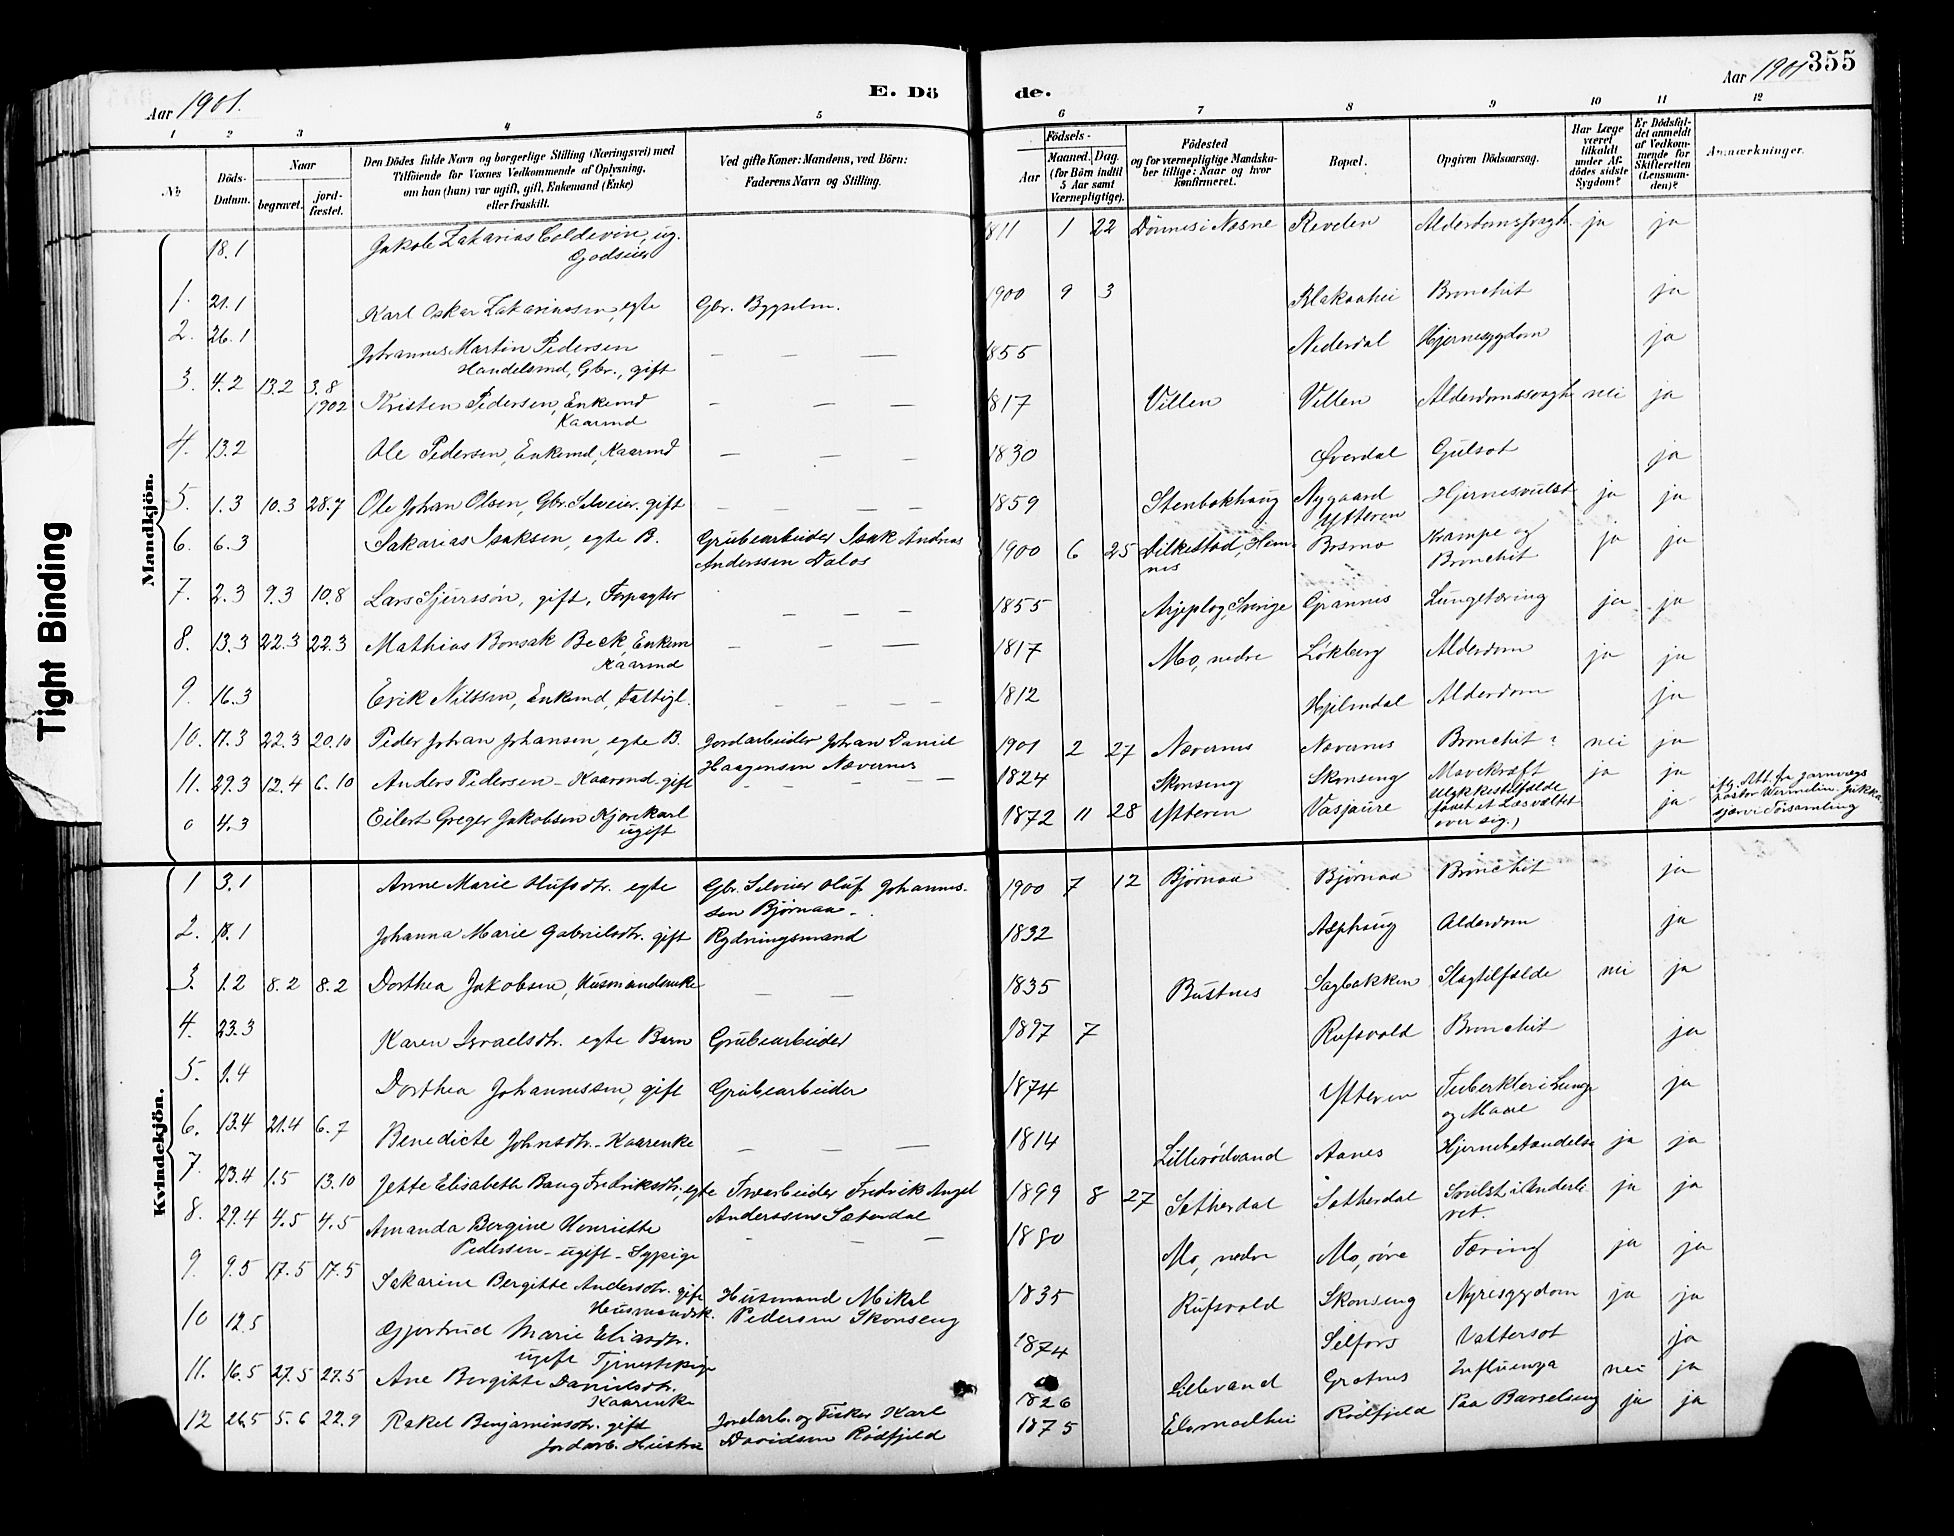 Aar 1901.
E. Dö
de.
Aar 1901
355
1 2 3 4 5 6 7 8 9 10 11 12
No
Döds-Datum.
Naar
begravet.
jord-fæstet.
Den Dödes fulde Navn og borgerlige Stilling (Næringsvei) med
Tilföiende for Voxnes Vedkommende af Oplysning,
om han (hun) var ugift, gift, Enkemand (Enke)
eller fraskilt.
Ved gifte Koner: Mandens, ved Börn:
Faderens Navn og Stilling.
Födsels-
Aar
Maaned. Dag.
(for Börn indtil
5 Aar samt
Værnepligtige).
Födested
og for værnepligtige Mandska-
ber tillige: Naar og hvor
konfirmeret.
Bopæl.
Opgiven Dödsaarsag.
Har Læge
været
tilkaldt
under Af-
dödes sidste
Sygdom?
Er Dödsfal-
det anmeldt
af Vedkom-
mende for
Skifteretten
(Lensman-
den)?
Anmærkninger.
Tight Binding
Mandkjön.
18.1 Jakob Zakarias Coldevin, ug. 1811 1 22 Dönnes i Nesne Revelen Alderdomssvagh. ja ja
Godseier
1. 21.1 Karl Oskar Zakariassen, egte Gbr. Bygselm. 1900 9 3 Blakaahei Bronchit ja
2. 26.1 Johannes Martin Pedersen — — — 1855 Nederdal Hjernesygdom ja
Handelsmd, Gbr., gift
3. 4.2 13.2 3.8 1902 Kristen Pedersen, Enkemd — — — 1817 Villen Villen Alderdomssvagh. nei ja
Kaarmd
4. 13.2 Ole Pedersen, Enkemd, Kaarmd — — — 1830 Øverdal Gulsot ja
5. 1.3 10.3 28.7 Ole Johan Olsen, Gbr. Selveier. gift — — — — 1859 Stenbakhaug Nygaard Ytteren Hjernesvulst ja ja
6. 6.3 Sakarias Isaksen, egte B. Grubearbeider Isak Andreas 1900 6 25 Hem- Bosmo Krampe og ja ja
Anderssen Dalos nes Bronchit
7. 2.3 9.3 10.8 Lars Sjurssøn, gift, Forpagter — — — 1855 Arjeplog, Sverige Grannes Lungetæring ja ja
8. 13.3 22.3 22.3 Mathias Bonsak Beck, Enkem — — — 1817 Mo, nedre Løkberg Alderdom ja ja
Kaarmd
9. 16.3 Erik Nilssen, Enkemd, Fattigl. — — — — 1812 Hjelmdal Alderdom ja
10. 17.3 22.3 20.10 Peder Johan Johansen, egte B. Jordarbeider Johan Daniel 1901 2 27 Nævernes Nævernes Bronchit? nei ja
Haagensen Nævernes
11. 29.3 12.4 6.10 Anders Pedersen - Kaarmd - gift — — — — 1824 Skonseng Skonseng Mavekræft ja ja
0 4.3 Eilert Greger Jakobsen Kjørekarl 1872 11 28 Ytteren Vasjaure Ulykkestilfælde ja
ugift faaet et Læs væltet
over sig.)
Att. fra Jarnvægs
pastor Jukka-
sjærvi Församling
Kvindekjön.
1 3.1 Anne Marie Olufsdtr. egte Gbr. Selveier Oluf Johannes- 1900 7 12 Bjørnaa Bjørnaa Bronchit ja
sen Bjørnaa
2. 18.1 Johanna Marie Gabrielsdtr. gift Rydningsmand 1832 Asphaug Alderdom ja
3. 1.2 8.2 8.2 Dorthea Jakobsen, Husmandsenke — — 1835 Bustnes Sagbakken Slagtilfælde nei ja
4. 23.3 Karen Israelsdtr. egte Barn Grubearbeider 1897 7 Rufsvold Bronchit ja
5. 9.4 Dorthea Johannessen, gift Grubearbeider 1874 Ytteren Tuberkler i Lunge ja
og Mave
6. 13.4 21.4 6.7 Benedicte Johnsdtr. - Kaarenke — — — 1814 Lillerødvand Aanes Hjernebetændelse ja ja
7. 23.4 1.5 13.10 Jette Elisabeth Baug Fredriksdtr. egte Træarbeider Fredrik Angel 1899 8 27 Sætherdal Sætherdal Svulst i Underli- ja ja
Anderssen Sæterdal vet.
8. 29.4 4.5 4.5 Amanda Bergine Henriette — — — 1880 Mo, nedre Mo, øvre Tæring ja ja
Pedersen - ugift - Sypige
9. 9.5 17.5 17.5 Sakarine Bergitte Andersdtr. gift Husmand Mikal 1835 Rufsvold Skonseng Nyresygdom ja ja
Husmandsk. Pedersen Skonseng
10 12.5 Gjertrud Marie Eliasdtr. 1874 Selfors Vattersot ja
ugift Tjenestepige
11. 16.5 27.5 27.5 Ane Bergitte Danielsdtr. 1826 Lillevand Grafnes Influenza nei ja
Kaarenke
12 26.5 5.6 22.9 Rakel Benjaminsdtr. gift Jordarb. og Fisker Karl 1875 Rødfjeld Paa Barselseng ja ja
Jordarb. Hustru Davidsen Rødfjeld